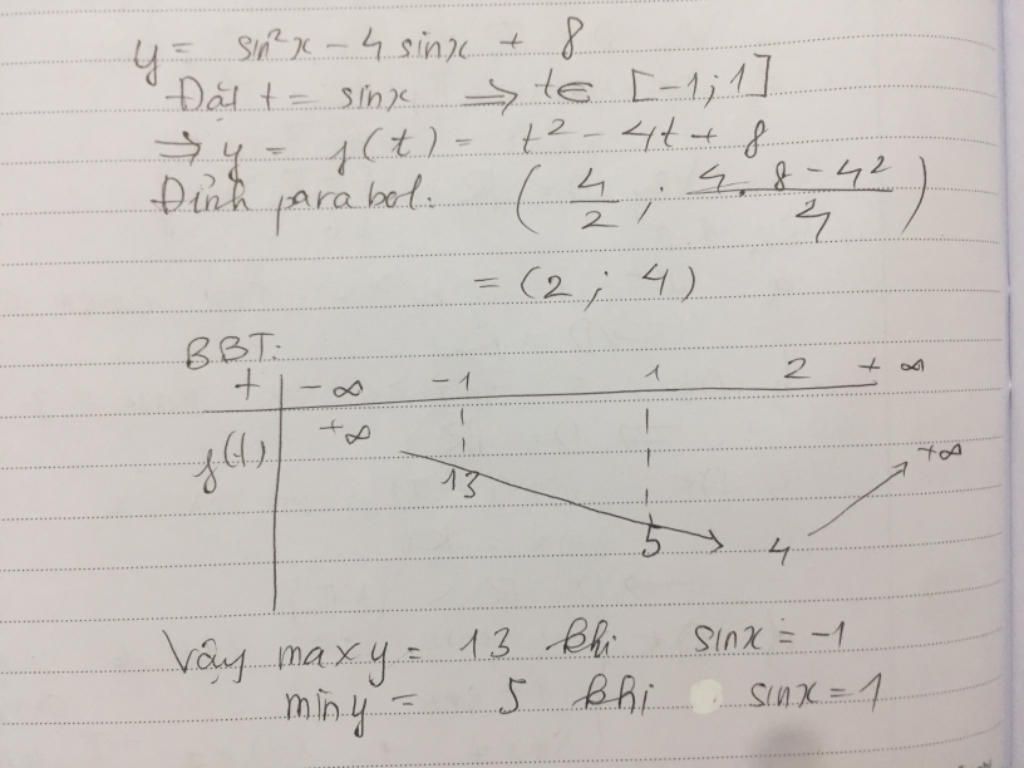 y = sin²x - 4 sinx + 8
Đặt t = sinx ⇒ t ∈ [-1; 1]
⇒ y = f(t) = t² - 4t + 8
Đỉnh parabol: (4/2 ; (4.8 - 4²)/4)
= (2 ; 4)
BBT:
t | -∞ -1 1 2 +∞
f(t) | +∞ 13 5 4 +∞
Vậy max y = 13 khi sinx = -1
min y = 5 khi sinx = 1